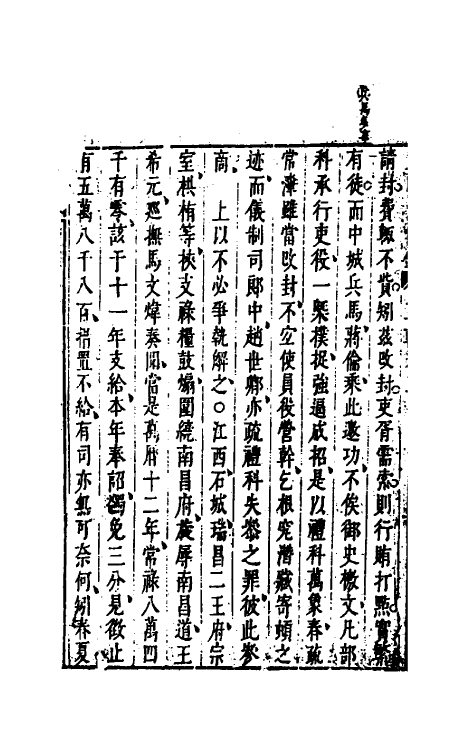 請封費輒不貲矧茲改封吏胥需索則行賄打點實繁
有徒而中城兵馬蔣倫乘此邀功不俟御史檄文凡部
科承行吏役一槩樸捉強逼成招是以禮科萬象春疏
常濚雖當改封不宜使員役營幹乞根究潛藏寄頓之
迹而儀制司郎中趙世卿亦疏禮科失叅之罪彼此參
商　上以不必爭競解之○江西石城瑞昌二王府宗
室栱栯等挾支祿糧鼓煽圍繞南昌府凌辱南昌道王
希元廵撫馬文煒奏聞當是萬曆十二年常祿八萬四
千有零該于十一年支給本年奉詔蠲免三分見徵止
有五萬八千八百措置不給有司亦無可奈何矧春夏